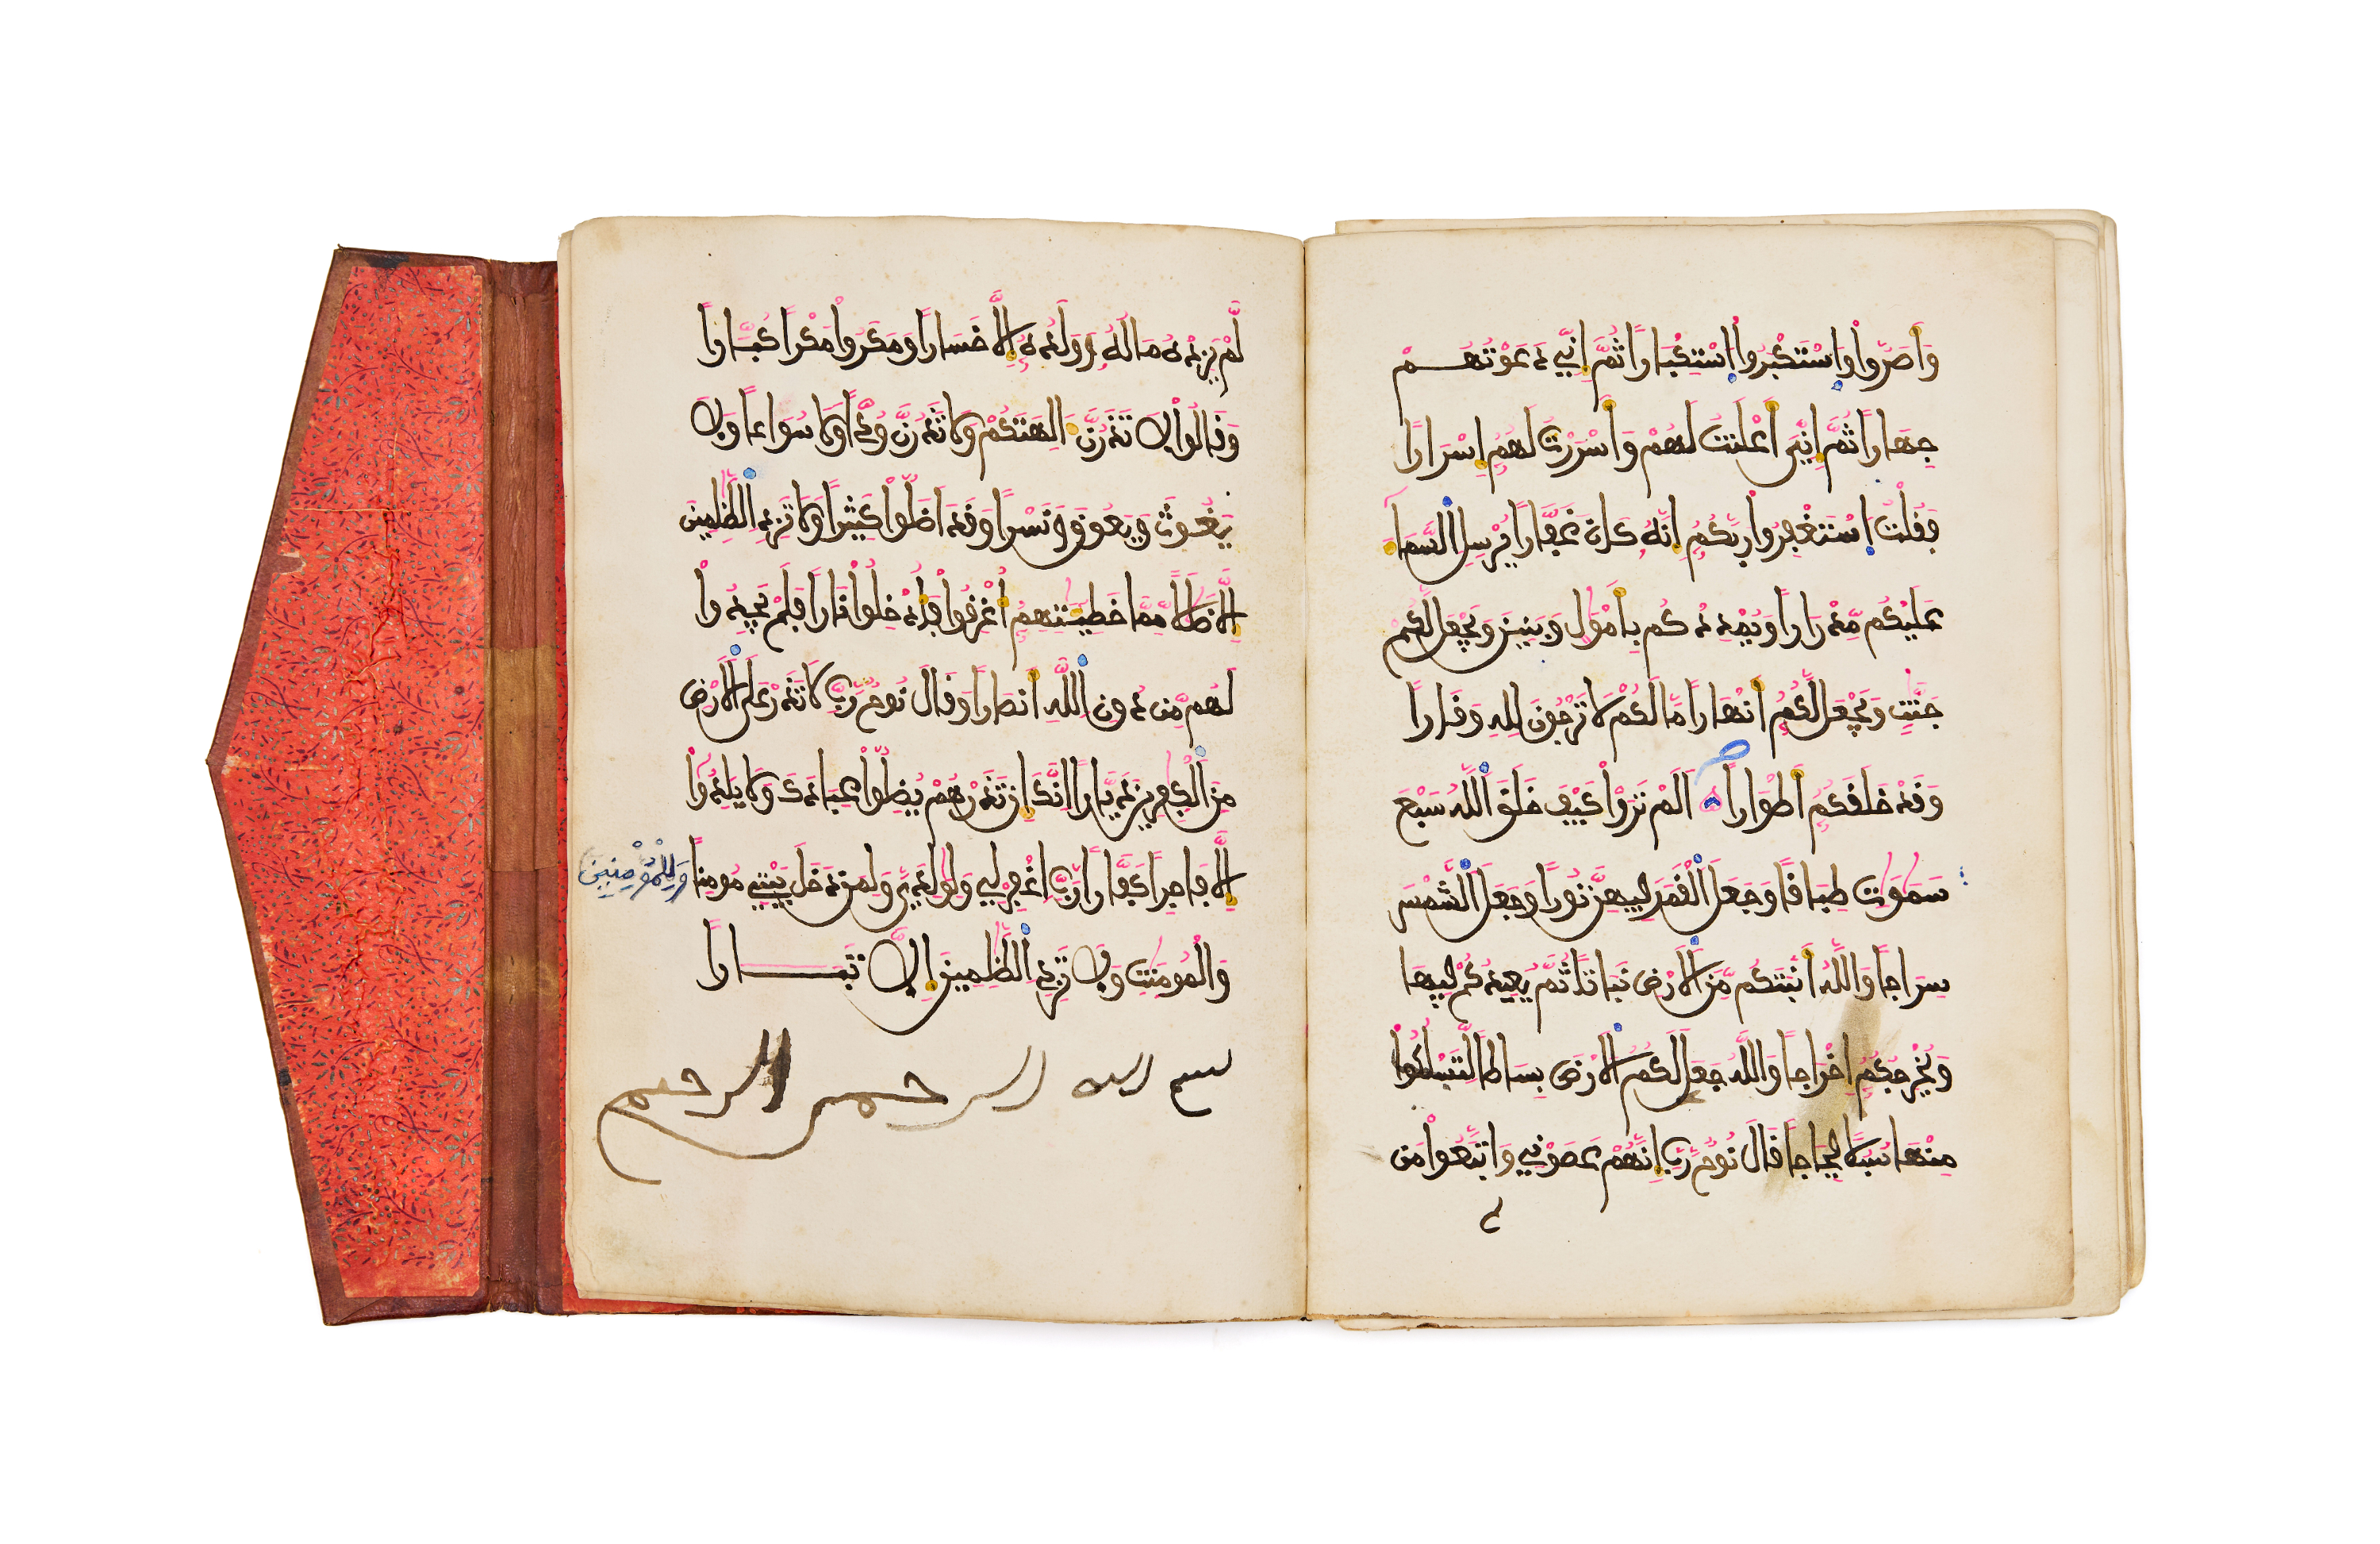 وَأَصَرُّواْ وَاسْتَكْبَرُواْ اسْتِكْبَاراً ثُمَّ إِنِّي دَعَوْتُهُمْ
جِهَاراً ثُمَّ إِنِّيَ أَعْلَنتُ لَهُمْ وَأَسْرَرْتُ لَهُمُ إِسْرَاراً
فَقُلْتُ اسْتَغْفِرُواْ رَبَّكُمُ إِنَّهُ كَانَ غَفَّاراً يُرْسِلِ السَّمَاءَ
عَلَيْكُم مِّدْرَاراً وَيُمْدِدْكُم بِأَمْوَٰلٍ وَبَنِينَ وَيَجْعَل لَّكُمْ
جَنَّٰتٍ وَيَجْعَل لَّكُمُ أَنْهَاراً مَّا لَكُمْ لَا تَرْجُونَ لِلهِ وَقَاراً
وَقَدْ خَلَقَكُمُ أَطْوَاراً اَلَمْ تَرَوْاْ كَيْفَ خَلَقَ اَللَّهُ سَبْعَ
سَمَٰوَٰتٍ طِبَاقاً وَجَعَلَ اَلْقَمَرَ فِيهِنَّ نُوراً وَجَعَلَ اَلشَّمْسَ
سِرَاجاً وَاللَّهُ أَنبَتَكُم مِّنَ اَلَارْضِ نَبَاتاً ثُمَّ يُعِيدُكُمْ فِيهَا
وَيُخْرِجُكُمُ إِخْرَاجاً وَاللَّهُ جَعَلَ لَكُمُ اَلَارْضَ بِسَاطاً لِّتَسْلُكُواْ
مِنْهَا سُبُلاً فِجَاجاً قَالَ نُوحٌ رَّبِّ إِنَّهُمْ عَصَوْنِي وَاتَّبَعُواْ مَن
لَّمْ يَزِدْهُ مَالُهُ وَوَلَدُهُ إِلَّا خَسَاراً وَمَكَرُواْ مَكْراً كُبَّاراً
وَقَالُواْ لَا تَذَرُنَّ ءَالِهَتَكُمْ وَلَا تَذَرُنَّ وُدّاً وَلَا سُوَاعاً وَلَا
يَغُوثَ وَيَعُوقَ وَنَسْراً وَقَدَ اَضَلُّواْ كَثِيراً وَلَا تَزِدِ اِلظَّٰلِمِينَ
إِلَّا ضَلَٰلاً مِّمَّا خَطِيـَٰٔتِهِمُ أُغْرِقُواْ فَأُدْخِلُواْ نَاراً فَلَمْ يَجِدُواْ
لَهُم مِّن دُونِ اِللَّهِ أَنصَاراً وَقَالَ نُوحٌ رَّبِّ لَا تَذَرْ عَلَى اَلَارْضِ
مِنَ اَلْكَٰفِرِينَ دَيَّاراً اِنَّكَ إِن تَذَرْهُمْ يُضِلُّواْ عِبَادَكَ وَلَا يَلِدُواْ
إِلَّا فَاجِراً كَفَّاراً رَّبِّ اِغْفِرْ لِي وَلِوَٰلِدَيَّ وَلِمَن دَخَلَ بَيْتِي مُومِناً وَلِلْمُؤْمِنِينَ
وَالْمُومِنَٰتِ وَلَا تَزِدِ اِلظَّٰلِمِينَ إِلَّا تَبَاراً
بسم الله الرحمن الرحيم